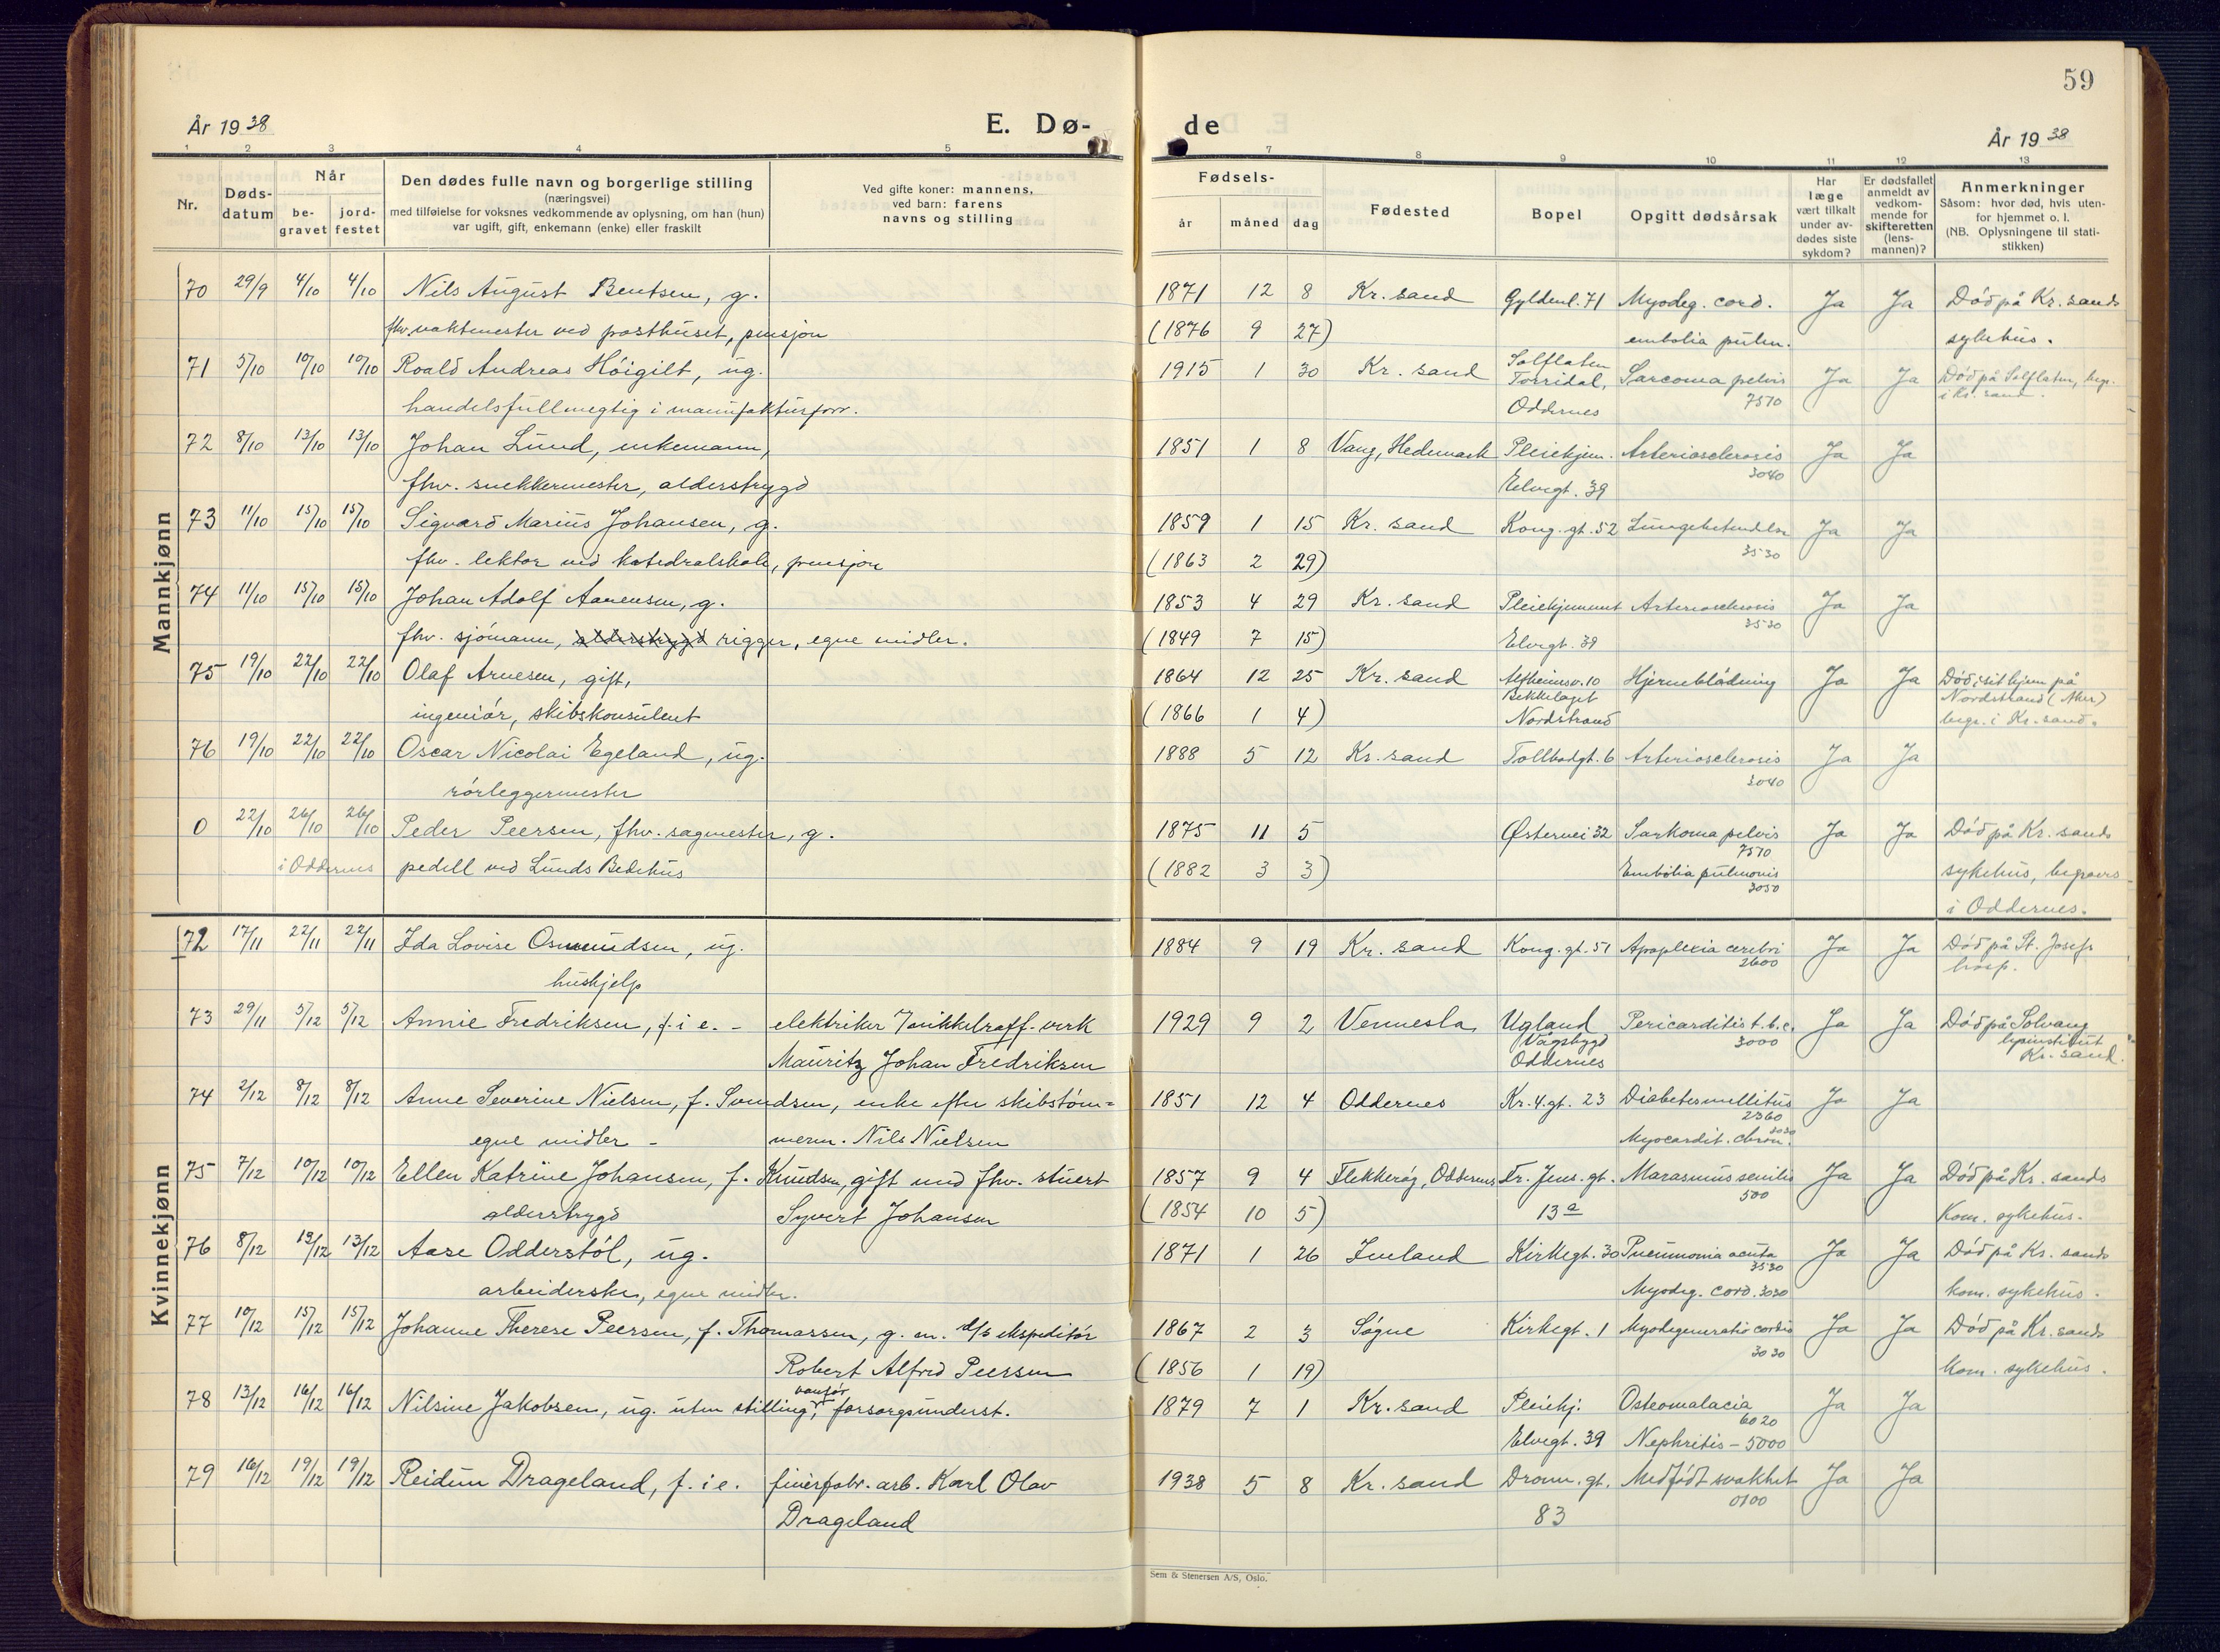 59
År 1938
E. Dø-
de
År 1938
1 2 3 4 5 7 8 9 10 11 12 13
Nr.
Døds-
datum
Når
be-
gravet
jord-
festet
Den dødes fulle navn og borgerlige stilling
(næringsvei)
med tilføielse for voksnes vedkommende av oplysning, om han (hun)
var ugift, gift, enkemann (enke) eller fraskilt
Ved gifte koner: mannens,
ved barn: farens
navns og stilling
Fødsels-
år måned dag
Fødested
Bopel
Opgitt dødsårsak
Har
læge
vært tilkalt
under av-
dødes siste
sykdom?
Er dødsfallet
anmeldt av
vedkom-
mende for
skifteretten
(lens-
mannen)?
Anmerkninger
Såsom: hvor død, hvis uten-
for hjemmet o. l.
(NB. Oplysningene til stati-
stikken)
Mannkjønn
70 29/9 4/10 4/10 Nils August Bentsen, g. 1871 12 8 Kr. sand Gyldenl. 71 Myodeg. cord. Ja Ja Død på Kr. sands
fhv. vaktmester ved posthuset, pensjon (1876 9 27) embolia pulm. sykehus.
71 5/10 10/10 10/10 Roald Andreas Höigilt, ug. 1915 1 30 Kr. sand Solflaten Torridal, Sarcoma pelvis Ja Ja Död på Solflaten, begr.
handelsfullmegtig i manufakturforr. Oddernes 7570 i Kr. sand.
72 8/10 13/10 13/10 Johan Lund, enkemann, 1851 1 8 Vang, Hedemark Pleiehjem. Arteriosclerosis Ja Ja
fhv. snekkermester, alderstrygd Elvegt. 39 3040
73 11/10 15/10 15/10 Sigvard Marius Johansen, g. 1859 1 15 Kr. sand Kong. gt. 52 Lungebetendelse Ja Ja
fhv. lektor ved katedralskole, pensjon (1863 2 29) 3530
74 11/10 15/10 15/10 Johan Adolf Aanensen, g. 1853 4 29 Kr. sand Pleiehjemmet Arteriosclerosis Ja Ja
fhv. sjömann, alderstrygd rigger, egne midler. (1849 7 15) Elvegt. 39 3530
75 19/10 22/10 22/10 Olaf Arnesen, gift, 1864 12 25 Kr. sand Alfheimsv. 10 Bekkelaget Hjerneblödning Ja Ja Död i sit hjem på Nordstrand (Aker)
ingeniör, skibskonsulent (1866 1 4) Nordstrand begr. i Kr. sand.
76 19/10 22/10 22/10 Oscar Nicolai Egeland, ug. 1888 5 12 Kr. sand Tollbodgt. 6 Arteriosclerosis Ja Ja
rörleggermester 3040
0 22/10 26/10 26/10 Peder Peersen, fhv. sagmester, g. 1875 11 5 Østervei 32 Sarkoma pelvis 7570 Ja Ja Död på Kr. sands
i Oddernes pedell ved Lunds Bedehus (1882 3 3) Embolia pulmonis 3050 sykehus, begraves
i Oddernes.
Kvinnekjønn
72 17/11 22/11 22/11 Ida Lovise Osmundsen, ug. 1884 9 19 Kr. sand Kong. gt. 51 Apoplexia cerebri Ja Ja Död på St. Josefs
hushjelp 2600 hosp.
73 29/11 5/12 5/12 Annie Fredriksen, f. i e. - elektriker v/nikkelraff. verk 1929 9 2 Vennesla Ugland Vågsbygd Pericarditis t.b.c. 3000 Ja Ja Död på Solvang
Mauritz Johan Fredriksen Oddernes Kr. sand.
74 2/12 8/12 8/12 Anne Severine Nielsen, f. Svendsen, enke efter skibstöm= 1851 12 4 Oddernes Kr. 4. gt. 23 Diabetes mellitus 2360 Ja Ja
egne midler - merm. Nils Nielsen Myocardit. chron. 3030
75 7/12 10/12 10/12 Ellen Katrine Johansen, f. Knudsen, gift med fhv. stuert 1857 9 4 Flekkeröy, Oddernes Fr. Jens. gt. Marasmus senilis 500 Ja Ja Död på Kr. sands
alderstrygd Syvert Johansen (1854 10 5) 13a Kom. sykehus.
76 8/12 13/12 13/12 Aase Odderstöl, ug. 1871 1 26 Iveland Kirkegt. 30 Pneumonia acuta 3530 Ja Ja Död på Kr. sands
arbeiderske, egne midler. Myodeg. cord. 3030 kom. sykehus.
77 10/12 15/12 15/12 Johanne Therese Peersen, f. Thomassen, g. m. d/s ekspeditör 1867 2 3 Sögne Kirkegt. 1 Myodegeneratio cordis 3030 Ja Ja Död på Kr. sands
Robert Alfred Peersen (1856 1 19) kom. sykehus.
78 13/12 16/12 16/12 Nilsine Jakobsen, ug. uten stilling, vanför forsorgsunderst. 1879 7 1 Kr. sand Pleiehj. Osteomalacia 6020 Ja Ja
Elvegt. 39 Nephritis - 5000
79 16/12 19/12 19/12 Reidun Drageland, f. i e. finérfabr. arb. Karl Olav 1938 5 8 Kr. sand Dronn. gt. Medfödt svakhet Ja Ja
Drageland 83 0100
Sem & Stenersen A/S, Oslo.